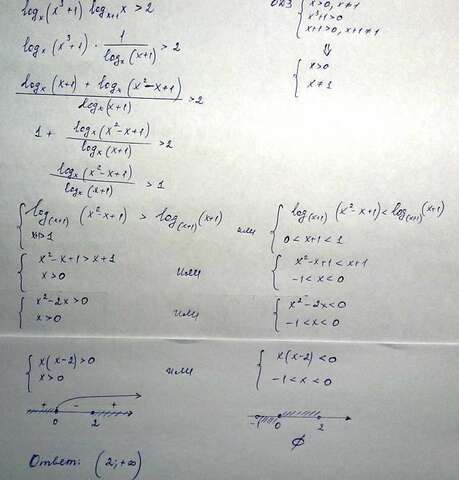 log_x (x³+1) log_{x+1} x > 2
ОДЗ { x>0, x≠1
x³+1>0
x+1>0, x+1≠1
log_x (x³+1) · 1/log_x (x+1) > 2
⇓
{ x>0
x≠1
(log_x (x+1) + log_x (x²-x+1))/log_x (x+1) > 2
1 + log_x (x²-x+1)/log_x (x+1) > 2
log_x (x²-x+1)/log_x (x+1) > 1
{ log_(x+1) (x²-x+1) > log_(x+1) (x+1) или { log_(x+1) (x²-x+1) < log_(x+1) (x+1)
x+1>1 0<x+1<1
{ x²-x+1>x+1 или { x²-x+1<x+1
x>0 -1<x<0
{ x²-2x>0 или { x²-2x<0
x>0 -1<x<0
{ x(x-2)>0 или { x(x-2)<0
x>0 -1<x<0
+ - +
0 2 -1 0 2
∅
Ответ: (2;+∞)